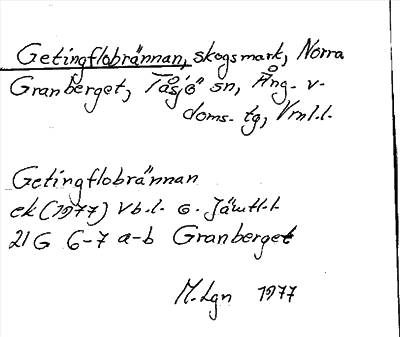 Getingflobrännan, skogsmark, Norra
Granberget, Tåsjö sn, Ång. v-
doms. tg, Vrnl.l.
Getingflobrännan
ek (1977) Vb.l. o. Jämtl.l.
21 G 6-7 a-b Granberget
M. Lgn 1977